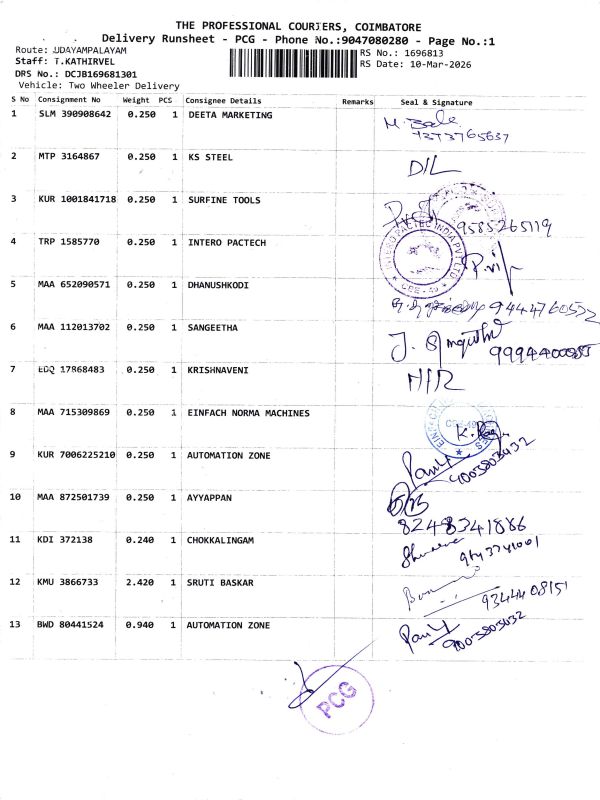 THE PROFESSIONAL COURIERS, COIMBATORE
Delivery Runsheet - PCG - Phone No.:9047080280 - Page No.:1
Route: UDAYAMPALAYAM
RS No.: 1696813
Staff: T.KATHIRVEL
RS Date: 10-Mar-2026
DRS No.: DCJB169681301
Vehicle: Two Wheeler Delivery
S No Consignment No Weight PCS Consignee Details Remarks Seal & Signature
1 SLM 390908642 0.250 1 DEETA MARKETING
7373765637
2 MTP 3164867 0.250 1 KS STEEL D/L
3 KUR 1001841718 0.250 1 SURFINE TOOLS 9585265119
4 TRP 1585770 0.250 1 INTERO PACTECH
INTERO PACTEC INDIA PVT LTD
CBE - 49
5 MAA 652090571 0.250 1 DHANUSHKODI 9444760532
6 MAA 112013702 0.250 1 SANGEETHA
7 EDQ 17868483 0.250 1 KRISHNAVENI
8 MAA 715309869 0.250 1 EINFACH NORMA MACHINES
9 KUR 7006225210 0.250 1 AUTOMATION ZONE
10 MAA 872501739 0.250 1 AYYAPPAN
8248341886
11 KDI 372138 0.240 1 CHOKKALINGAM
12 KMU 3866733 2.420 1 SRUTI BASKAR 9344408151
13 BWD 80441524 0.940 1 AUTOMATION ZONE
PCG